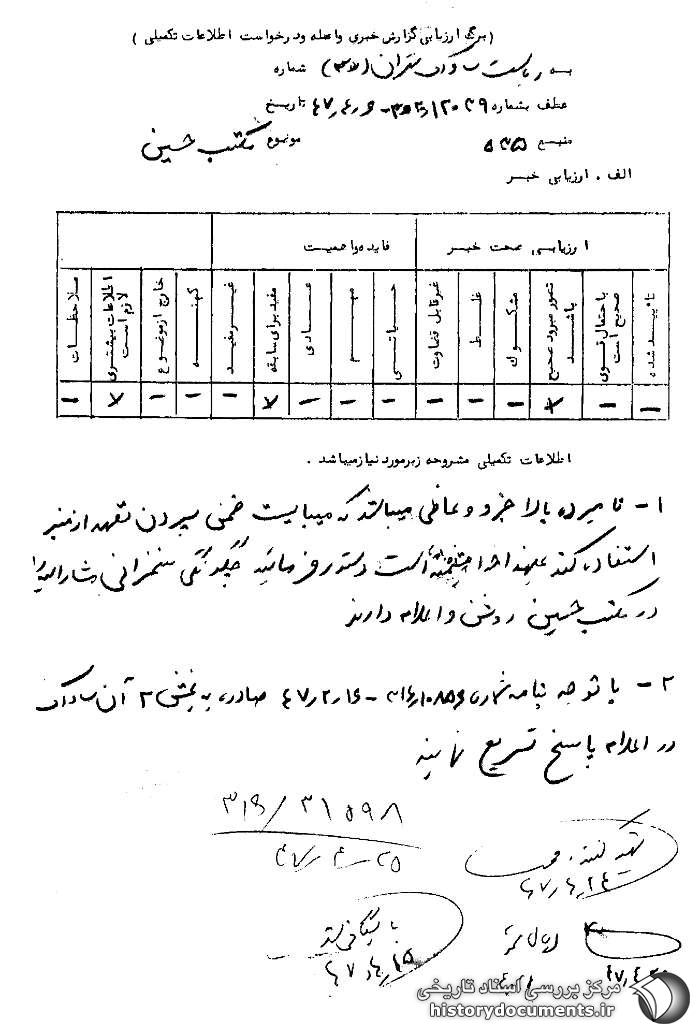 (برگ ارزیابی گزارش خبری واصله و درخواست اطلاعات تکمیلی)
به ریاست ساواک تهران شماره
عطف بشماره تاریخ
منبع ۵۳۵ موضوع مکتب حسین
الف. ارزیابی خبر
ارزیابی صحت خبر فایده و اهمیت
تأیید شده
باحتمال قوی صحیح است
تصور میرود صحیح باشد
مشکوک
غلط
غیرقابل قضاوت
حیاتی
مهم
عادی
مفید برای سابقه
غیرمفید
کهنه
خارج از موضوع
اطلاعات بیشتری لازم است
ملاحظات
اطلاعات تکمیلی مشروحه زیر مورد نیاز میباشد.
۱- نامبرده بالا جزو وعاظی میباشد که میبایست ضمن سپردن تعهد از منبر
استفاده کند علیهذا است دستور فرمایند چگونگی سخنرانی مشارالیه را
در مکتب حسین روشن و اعلام دارند
۲- با توجه بنامه شماره صادره به بخش ۲ آن ساواک
در اعلام پاسخ تسریع نمایند
۳۱۶/۳۱۵۹۸
۴۷/۴/۲۵
۴۷/۴/۲۴
بایگانی شود
مرکز بررسی اسناد تاریخی
historydocuments.ir